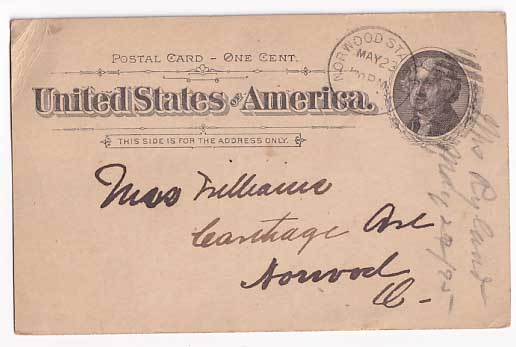 POSTAL CARD - ONE CENT.
United States of America.
THIS SIDE IS FOR THE ADDRESS ONLY.
NORWOOD STA.
MAY 23
PM
Miss Williams
Carthage Ave
Norwood
O.
Ryland
May 22/95